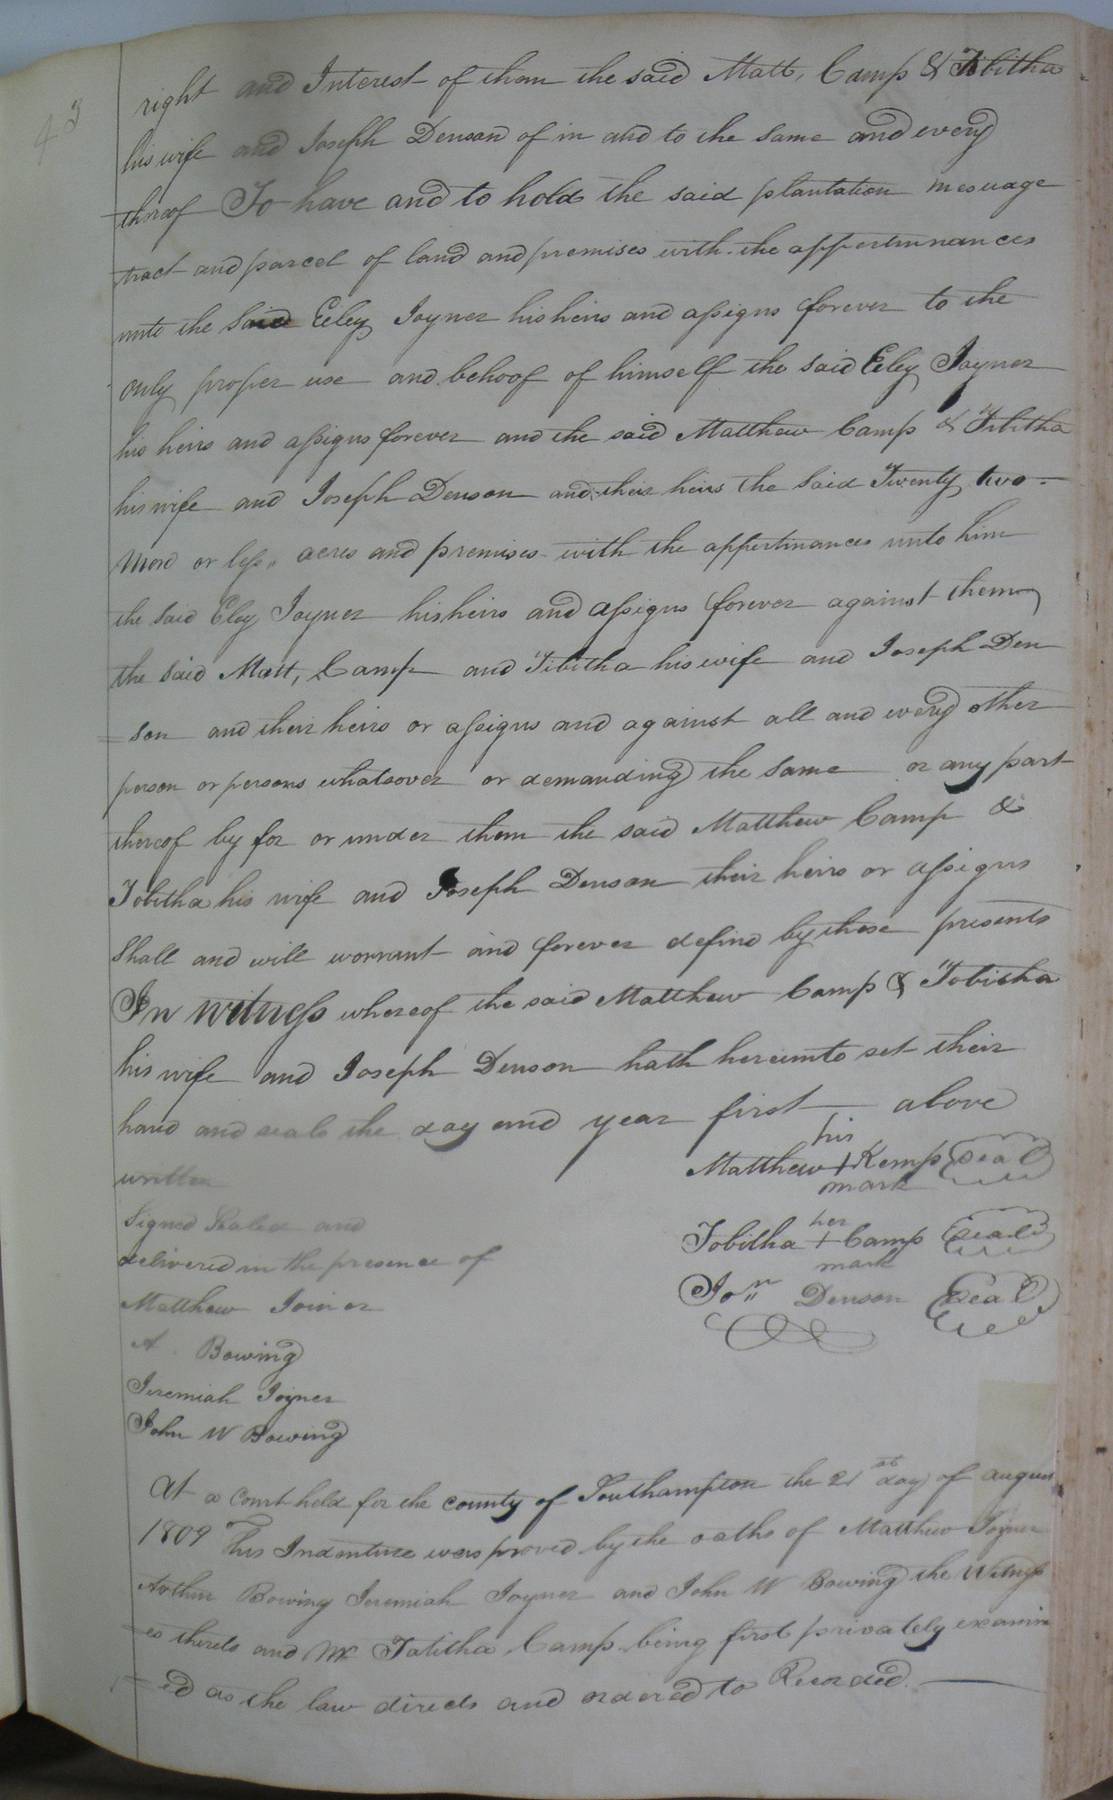 43
right and Interest of them the said Matt, Camp & Tibitha
his wife and Joseph Denson of in and to the same and every
thereof To have and to hold the said plantation mesuage
tract and parcel of land and premises with the appertinances
unto the said Eley Joyner his heirs and assigns forever to the
only proper use and behoof of himself the said Eley Joyner
his heirs and assigns forever and the said Matthew Camp & Tibitha
his wife and Joseph Denson and their heirs the said Twenty two
more or less acres and premises with the appertinances unto him
the said Eley Joyner his heirs and assigns forever against them
the said Matt, Camp and Tibitha his wife and Joseph Den
= son and their heirs or assigns and against all and every other
person or persons whatsoever or demanding the same or any part
thereof by for or under them the said Matthew Camp &
Tobitha his wife and Joseph Denson their heirs or assigns
Shall and will warrant and forever defind by these presents
In witness whereof the said Matthew Camp & Tobitha
his wife and Joseph Denson hath hereunto set their
hand and seals the day and year first above
written
his
Matthew + Kemp Seal
mark
Signed Sealed and
delivered in the presence of
her
Tobitha + Camp Seal
mark
Matthew Joiner
Jos Denson Seal
A Bowing
Jeremiah Joyner
John W Bowing
At a court held for the county of Southampton the 21st day of august
1809 This Indenture was proved by the oaths of Matthew Joyner
Arthur Bowing Jeremiah Joyner and John W Bowing the Witness
= es thereto and Tabitha Camp being first privately examin
= ed as the law directs and ordered to Recorded